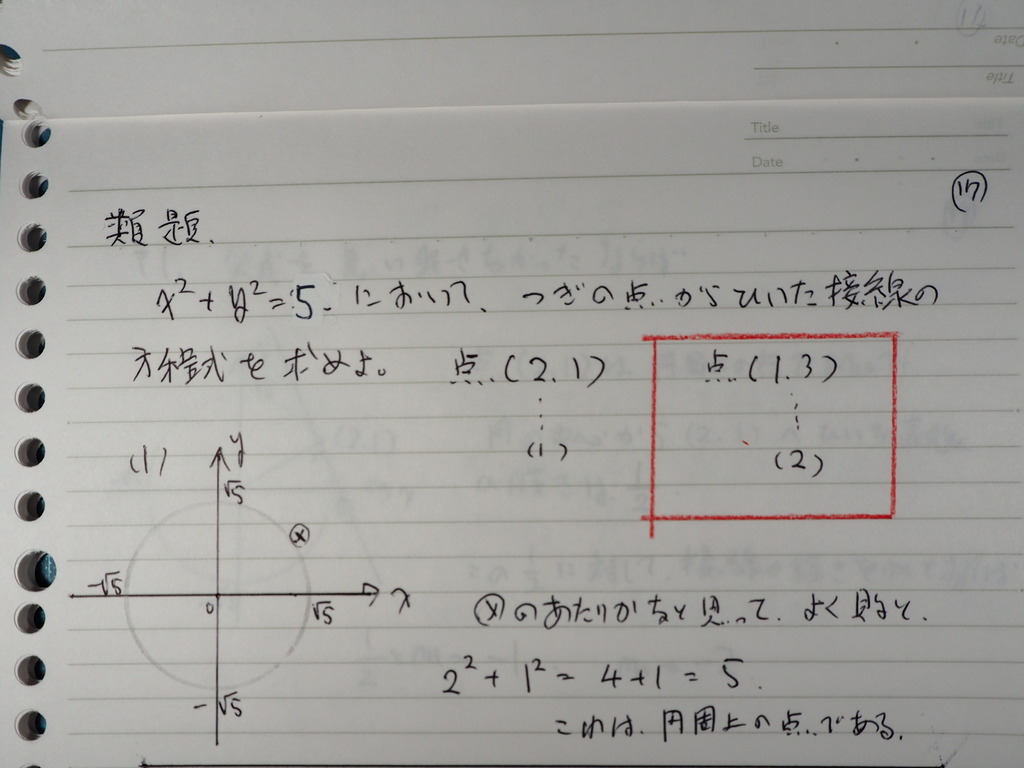 Title
Date
⑰
類題.
x²+y²=5. において、つぎの点からひいた接線の
方程式を求めよ。 点(2.1) 点(1.3)
(1) (2)
(1)
y
√5
ⓧ
-√5 0 √5 x
-√5
ⓧのあたりかなと思って、よく見ると、
2²+1²= 4+1 = 5.
これは、円周上の点である。